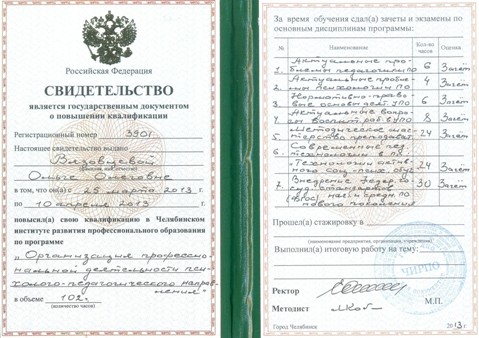 Российская Федерация
СВИДЕТЕЛЬСТВО
является государственным документом
о повышении квалификации
Регистрационный номер 3901
Настоящее свидетельство выдано
Вязовцевой
(фамилия, имя, отчество)
Ольге Олеговне
в том, что он(а) с 25 марта 2013 г.
по 10 апреля 2013 г.
повысил(а) свою квалификацию в Челябинском
институте развития профессионального образования
по программе
„Организация професси-
ональной деятельности пси-
холого-педагогического направ-
ления"
в объеме 102 ч.
(количество часов)
За время обучения сдал(а) зачеты и экзамены по
основным дисциплинам программы:
№ Наименование Кол-во часов Оценка
1. Актуальные про-
блемы педагогики ПО 6 Зачёт
2. Актуальные пробле-
мы психологии ПО 4 Зачёт
3. Нормативно-право-
вые основы деят. УПО 6 Зачёт
4. Актуальные вопро-
сы воспит. раб. в УПО 8 Зачёт
5. Методическое мас-
терство преподават. 24 Зачёт
6. Современные пед.
технологии в
Технологии активн.
ого соц.-псих. обуч. 24 Зачёт
7. Внедрение федер. го-
суд. стандартов 30 Зачёт
(ФГОС) нач и средн ПО
нового поколения
Прошел(а) стажировку в
(наименование предприятия, организации, учреждения)
Выполнил(а) итоговую работу на тему:
ЧИРПО
Ректор
Методист
М.П.
Город Челябинск 2013 г.